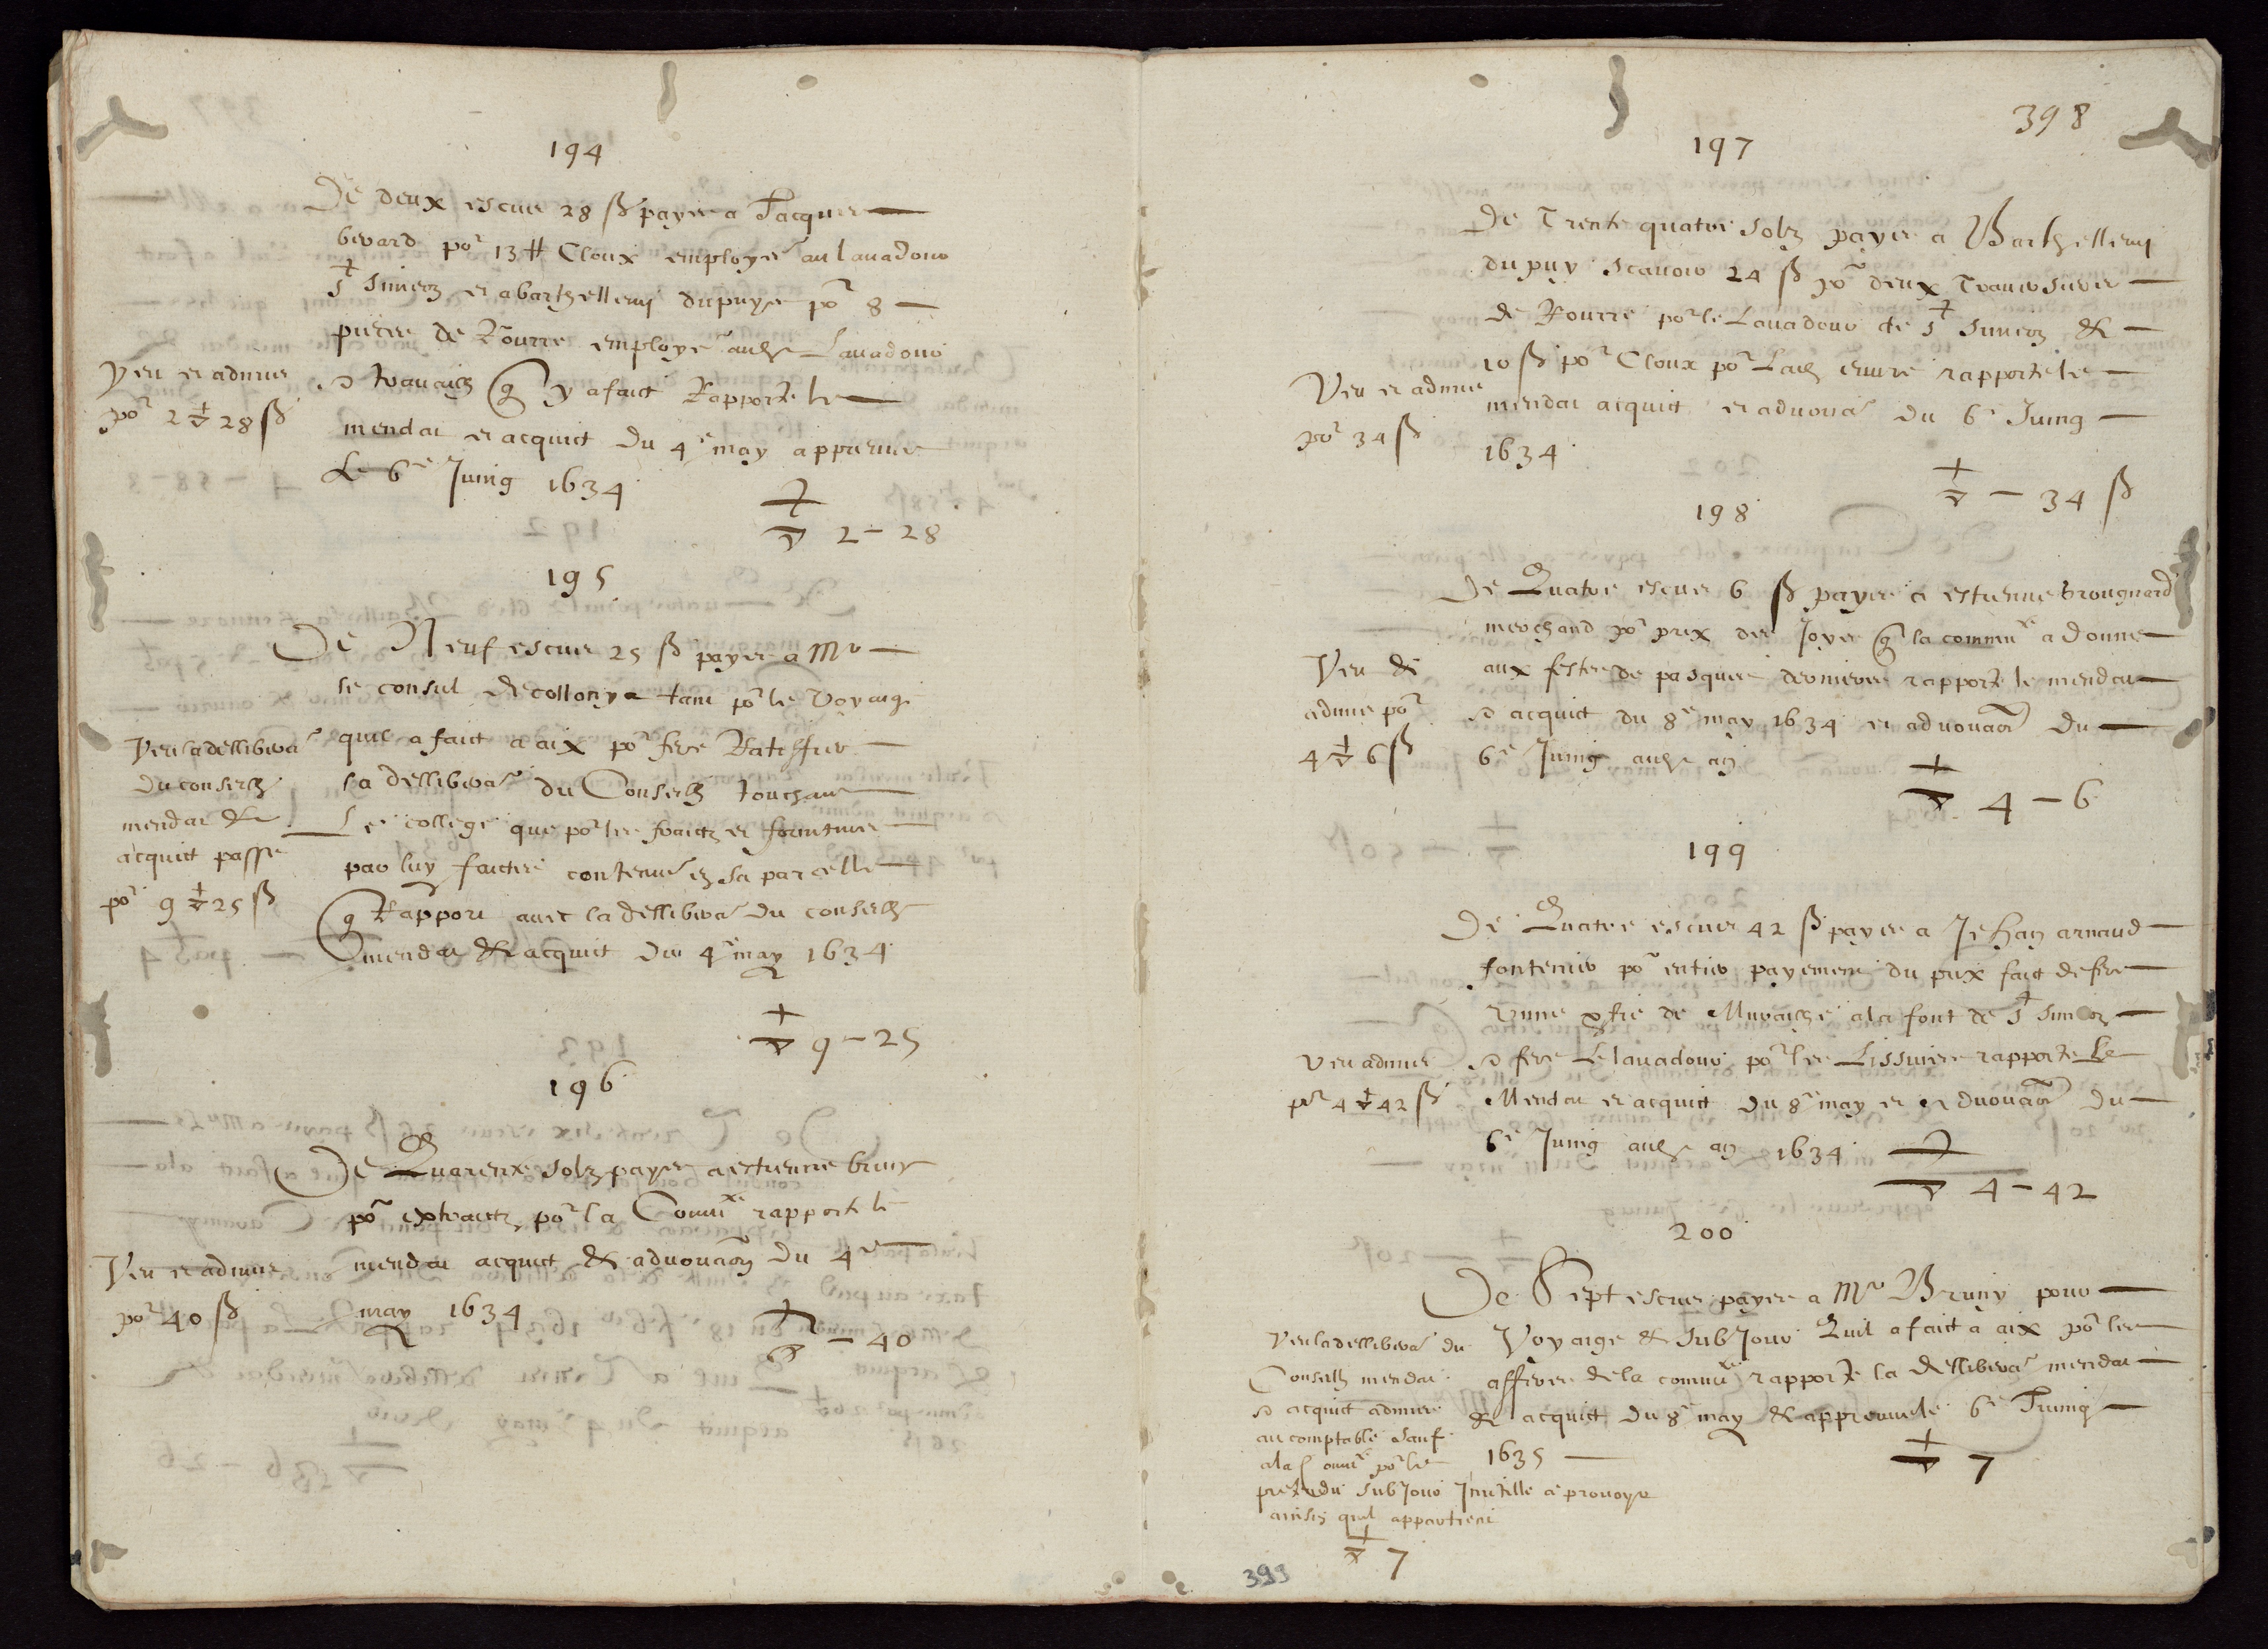 194
De deux escus 28 ß payes a Jacques
berard por 13 # Cloux employé au lavadour
St Simeon et a barthellemi dupuys por 8
pieces de Rourre employe audt Lavadour
& travailh q y a faict Rapporte le
mendat et acquit du 4e may appreuve
Le 6e Juing 1634
2 - 28
Veu et admis
por 2 28 ß
195
De Neuf escus 25 ß payes a Mr
le consul de collonya tant por le voyaige
quil a faict a aix por fere Ratiffier
la delliberaon du Conseilh touchant
Le college que por les fraictz et fornitures
par luy faictes contenues en sa parcelle
q Rapport avec la delliberaon du conseilh
mendat & acquit du 4e may 1634
9 - 25
Veu la delliberaon
du conseilh
mendat &
acquit passé
por 9 25 ß
196
De Quarente solz payes a estienne bruny
por extraictz por la Commté rapporte le
mendat acquit & advouaon du 4e
may 1634
- 40
Veu et admis
por 40 ß
398
197
De Trente quatre solz payes a Barthellemi
dupuy scavoir 24 ß por deux Traversieres
de Rourre por le Lavadour de St Simeon &
10 ß por Cloux por Lad euvre rapporte le
mendat acquit et advouaon du 6e Juing
1634
- 34 ß
Veu et admis
por 34 ß
198
De Quatre escus 6 ß payes a estienne brougnard
merchand por prix des Joyes q la commté a donne
aux festes de pasques dernieres rapporte le mendat
& acquit du 8e may 1634 et advouaon du
6e Juing audt an
4 - 6
Veu &
admis por
4 6 ß
199
De Quatre escus 42 ß payes a Jehan arnaud
fontenier por entier payement du prix fait de fere
Une de Muraihe a la font de St Simeon
& fere Le lavadour por les Lissives rapporte Le
Mendat et acquit du 8e may et advouaon du
6e Juing audt an 1634
4 - 42
Veu admis
por 4 42 ß
200
De Sept escus payes a Mr Bruny pour
Voyaige & Subjour Quil a faict a aix por les
afferes de la commté rapporte la delliberaon mendat
& acquit du 8e may & appreuve le 6e Juing
1635
7
Veu la delliberaon du
Conseilh mendat
& acquit admis
au comptable Sauf
a la Commté por le
pretendu subjour Inutille a provoyr
ainsin quil appartient
7
399